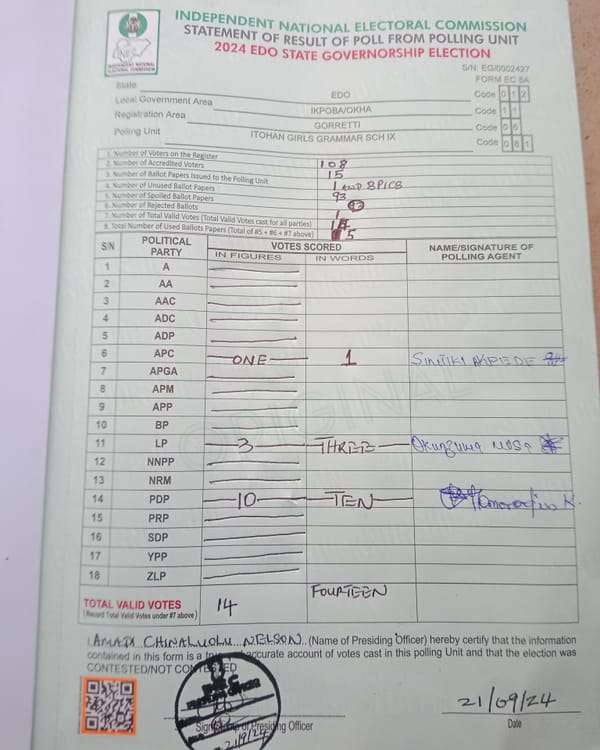 INDEPENDENT NATIONAL ELECTORAL COMMISSION
STATEMENT OF RESULT OF POLL FROM POLLING UNIT
2024 EDO STATE GOVERNORSHIP ELECTION
S/N: EG/0002427
FORM EC 8A
State EDO Code 0 1 2
Local Government Area IKPOBA/OKHA Code 1 1
Registration Area GORRETTI Code 0 6
Polling Unit ITOHAN GIRLS GRAMMAR SCH IX Code 0 6 1
1. Number of Voters on the Register 108
2. Number of Accredited Voters 15
3. Number of Ballot Papers Issued to the Polling Unit 1 AND 8PICS
4. Number of Unused Ballot Papers 93
5. Number of Spoiled Ballot Papers
6. Number of Rejected Ballots 1
7. Number of Total Valid Votes (Total Valid Votes cast for all parties)
8. Total Number of Used Ballots Papers (Total of #5 + #6 + #7 above) 5
S/N POLITICAL PARTY VOTES SCORED NAME/SIGNATURE OF POLLING AGENT
IN FIGURES IN WORDS
1 A
2 AA
3 AAC
4 ADC
5 ADP
6 APC ONE 1
7 APGA
8 APM
9 APP
10 BP
11 LP 3 THREE
12 NNPP
13 NRM
14 PDP 10 TEN
15 PRP
16 SDP
17 YPP
18 ZLP
TOTAL VALID VOTES 14 FOURTEEN
(Record Total Valid Votes under #7 above)
I AMADI CHINALUOLU NELSON (Name of Presiding Officer) hereby certify that the information
contained in this form is a accurate account of votes cast in this polling Unit and that the election was
CONTESTED/NOT CONTESTED
Presiding Officer
21/09/24
Date
ORIGINAL